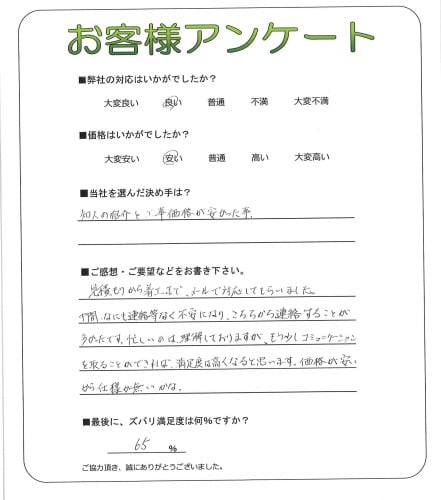 お客様アンケート
■弊社の対応はいかがでしたか？
大変良い 良い 普通 不満 大変不満
■価格はいかがでしたか？
大変安い 安い 普通 高い 大変高い
■当社を選んだ決め手は？
知人の紹介と、単価格が安かった事。
■ご感想・ご要望などをお書き下さい。
見積もりから着工まで、メールで対応してもらいました。
間、なにも連絡等なく不安になり、こちらから連絡することが
多かったです。忙しいのは、理解しておりますが、もう少しコミュニケーション
を取ることができれば、満足度は高くなると思います。価格が安い
から仕様が無いかな。
■最後に、ズバリ満足度は何%ですか？
65 %
ご協力頂き、誠にありがとうございました。